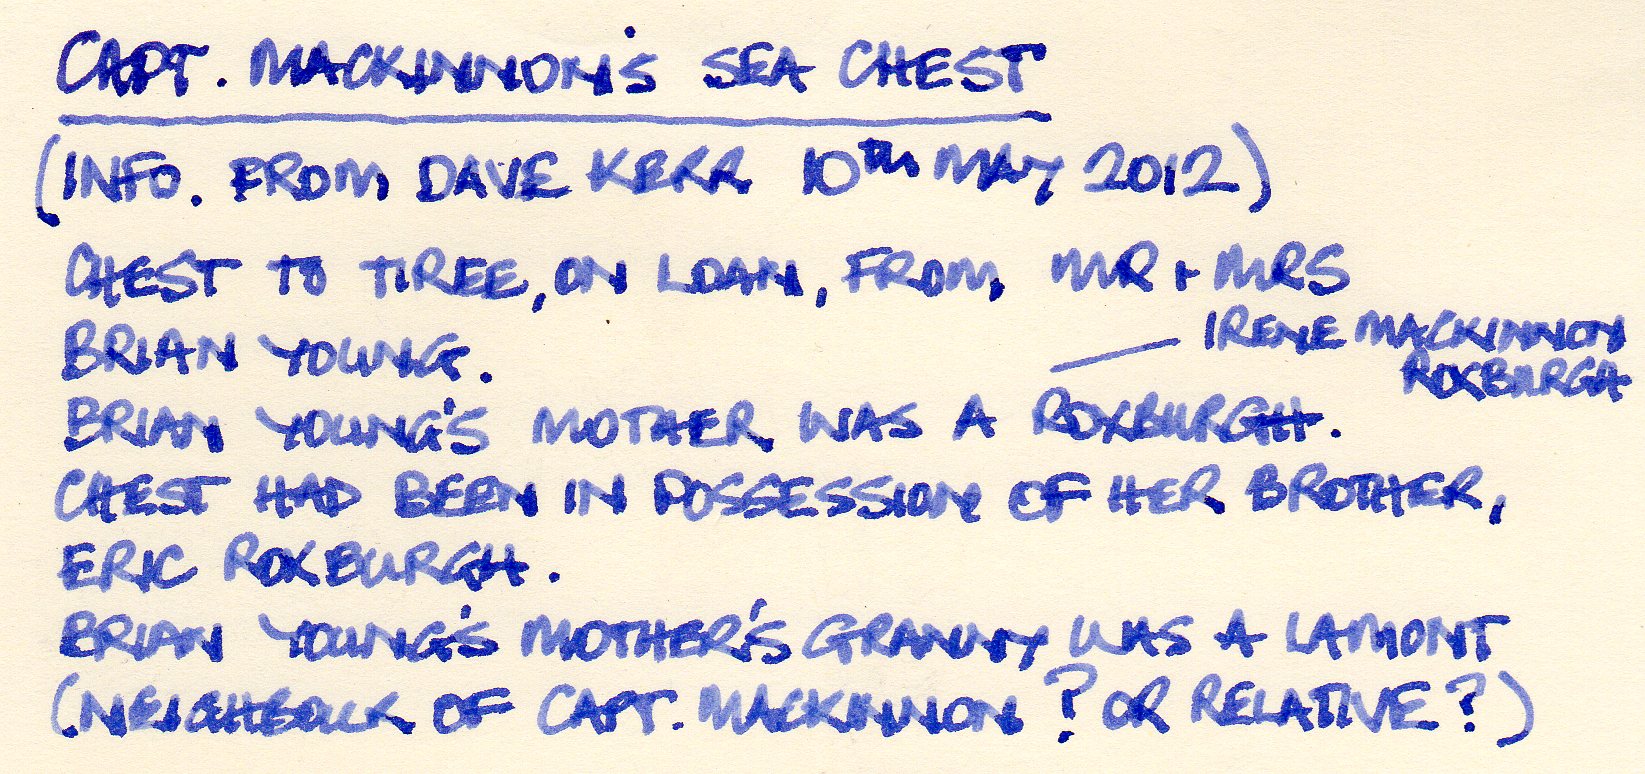 CAPT. MACKINNON'S SEA CHEST
(INFO. FROM DAVE KERR 10th MAY 2012)
CHEST TO TIREE, ON LOAN, FROM MR + MRS
BRIAN YOUNG.
IRENE MACKINNON
ROXBURGH
BRIAN YOUNG'S MOTHER WAS A ROXBURGH.
CHEST HAD BEEN IN POSSESSION OF HER BROTHER,
ERIC ROXBURGH.
BRIAN YOUNG'S MOTHER'S GRANNY WAS A LAMONT
(NEIGHBOUR OF CAPT. MACKINNON? OR RELATIVE?)